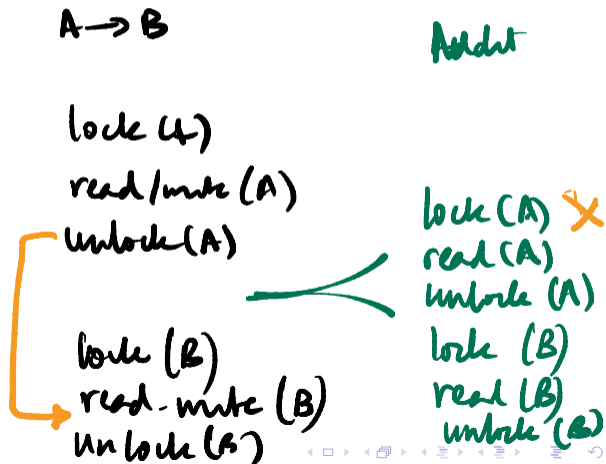 A → B
lock (A)
read/write (A)
unlock (A)
lock (B)
read-write (B)
Unlock (B)
Audit
lock (A) X
read (A)
unlock (A)
lock (B)
read (B)
unlock (B)